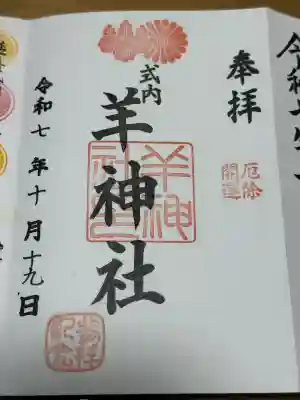 奉拝
厄除
開運
式内
羊神社
羊神
社
令和七年十月十九日